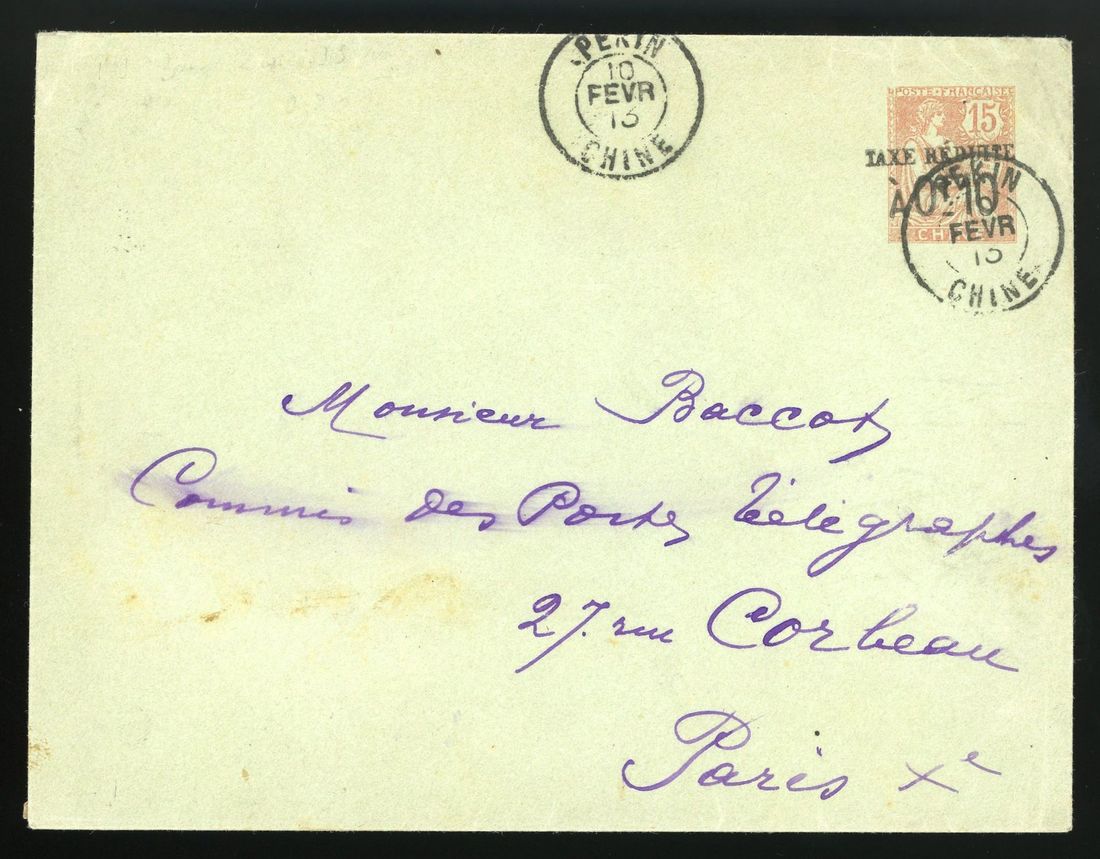 PEKIN
10
FEVR
13
CHINE
POSTE FRANÇAISE
15
TAXE RÉDUITE
À 0f 10
CHINE
PEKIN
10
FEVR
13
CHINE
Monsieur Baccot
Commis des Postes Télégraphes
27. rue Corbeau
Paris Xe